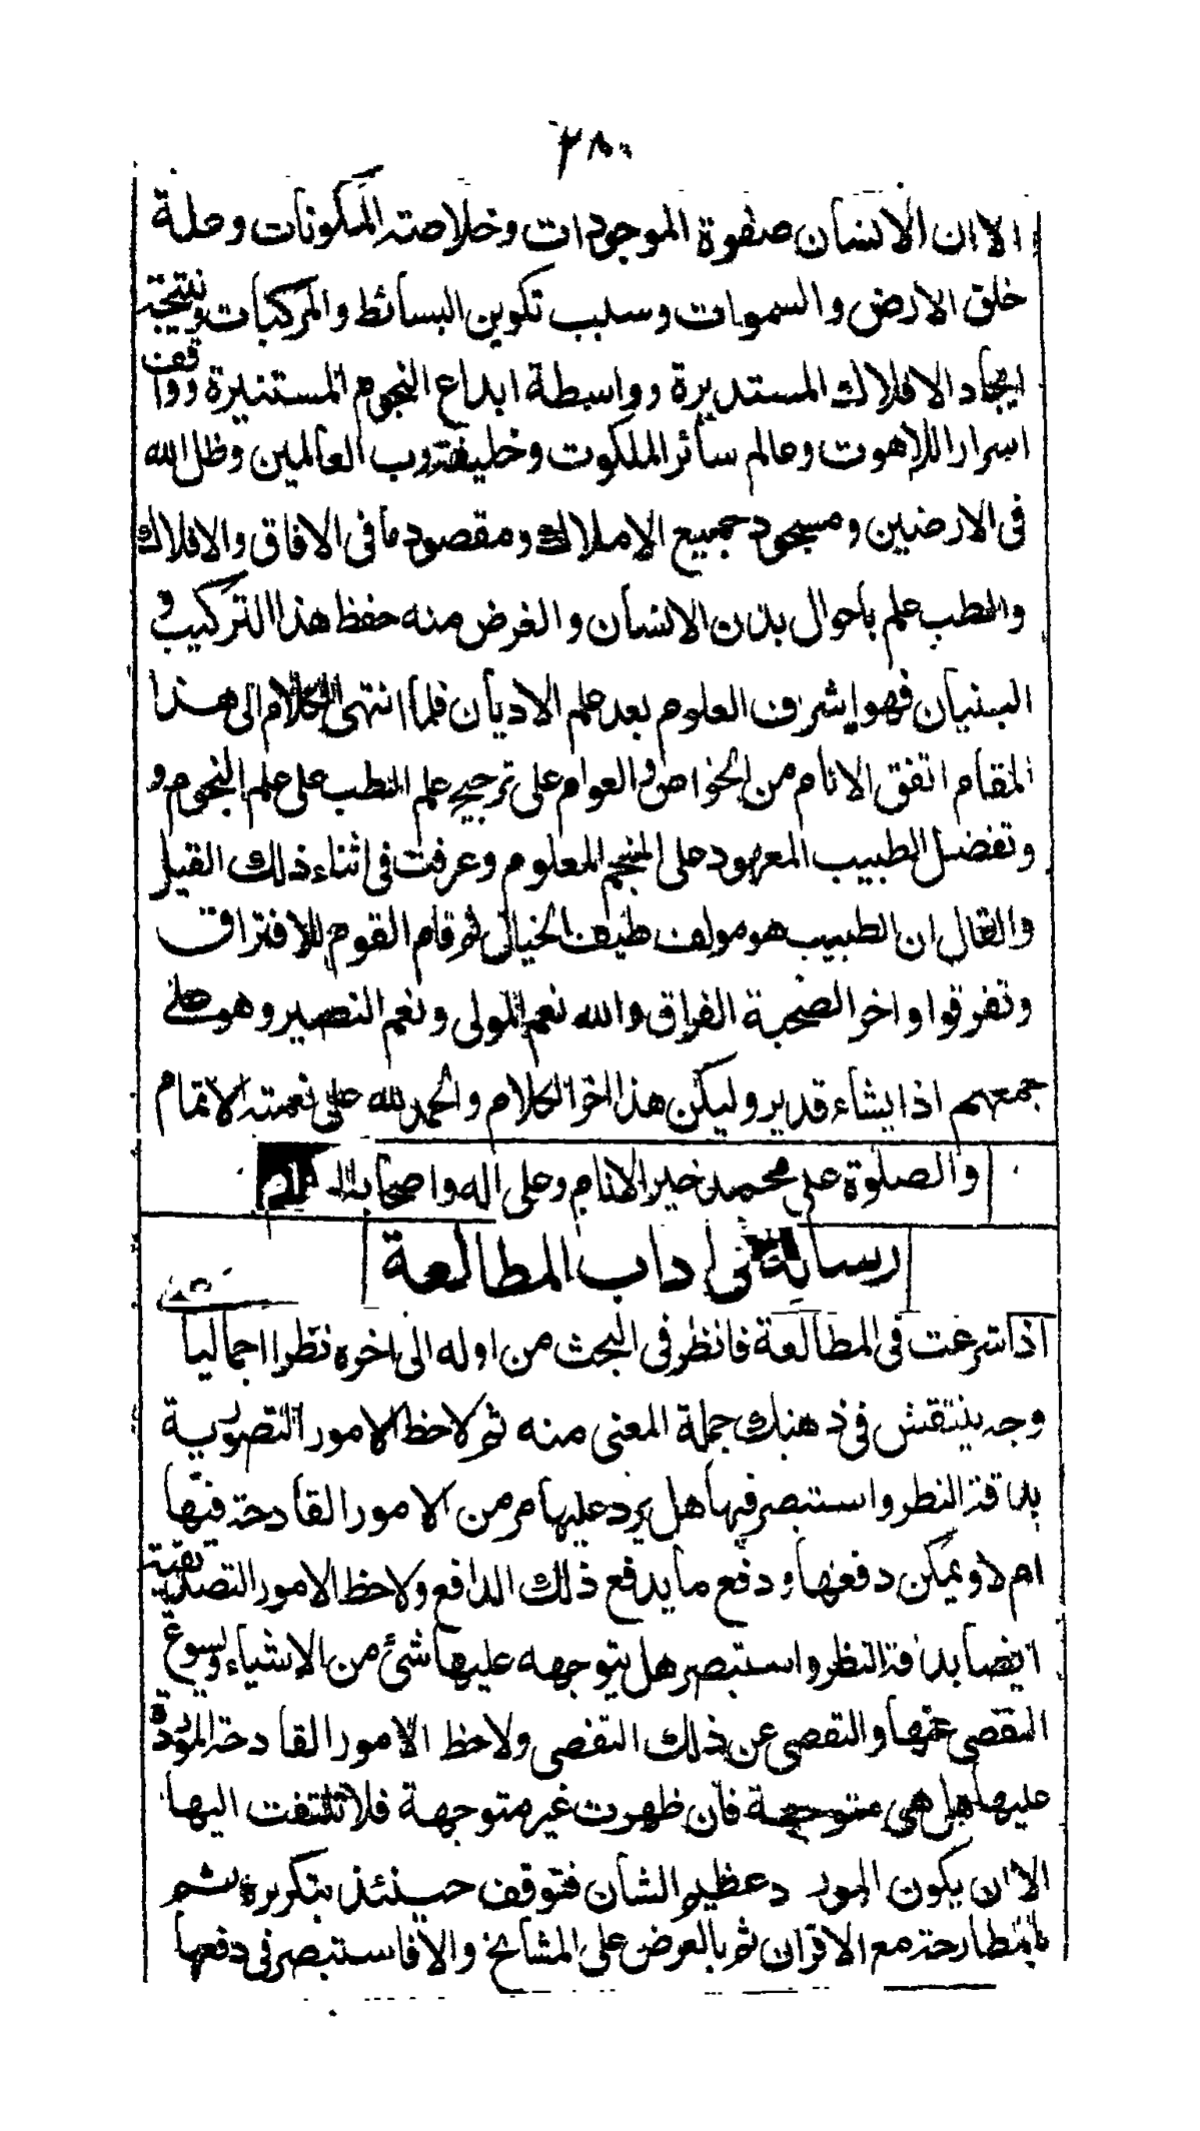 ٢٨٠
الا ان الانسان صفوة الموجودات وخلاصته المكونات وعلة
خلق الارض والسموات وسبب تكوين البسائط والمركبات ونتيجة
ايجاد الافلاك المستديرة وواسطة ابداع النجوم المستنيرة وواقف
اسرار اللاهوت وعالم سائر الملكوت وخليفة رب العالمين وظل الله
فى الارضين ومسجود جميع الاملاك ومقصود ما فى الافاق والافلاك
والطب علم باحوال بدن الانسان والغرض منه حفظ هذا التركيب و
البنيان فهو اشرف العلوم بعد علم الاديان فلما انتهى الكلام الى هذا
المقام اتفق الانام من الخواص والعوام على ترجيح علم الطب على علم النجوم و
وتفضل الطبيب المعهود على المنجم المعلوم وعرفت فى اثناء ذلك القيل
والقال ان الطبيب هو مولف طيف الخيال ثم قام القوم للافتراق
وتفرقوا واخر الصحبة الفراق والله نعم المولى ونعم النصير وهو على
جمعهم اذا يشاء قدير وليكن هذا اخر الكلام والحمد لله على نعمته الاتمام
والصلوة على محمد خير الانام وعلى اله واصحابه
رسالة فى اداب المطالعة
اذا شرعت فى المطالعة فانظر فى البحث من اوله الى اخره نظرا اجماليا
وجه ينتقش فى ذهنك جملة المعنى منه ثم لاحظ الامور التصورية
بدقة النظر واستبصر فيها هل يرد عليها امر من الامور القادحة فيها
ام لا ويمكن دفعها ودفع ما يدفع ذلك الدافع ولاحظ الامور التصديقية
ايضا بدقة النظر واستبصر هل يتوجه عليها شئ من الاشياء ويسوغ
التفصى عنها والتقصى عن ذلك التفصى ولاحظ الامور القادحة الموردة
عليها هل هى متوجهة فان ظهرت غير متوجهة فلا تلتفت اليها
الا ان يكون المورد عظيم الشان فتوقف حينئذ بتكريره ثم
بالمطارحة مع الاقران ثم بالعرض على المشايخ والا فاستبصر فى دفعها